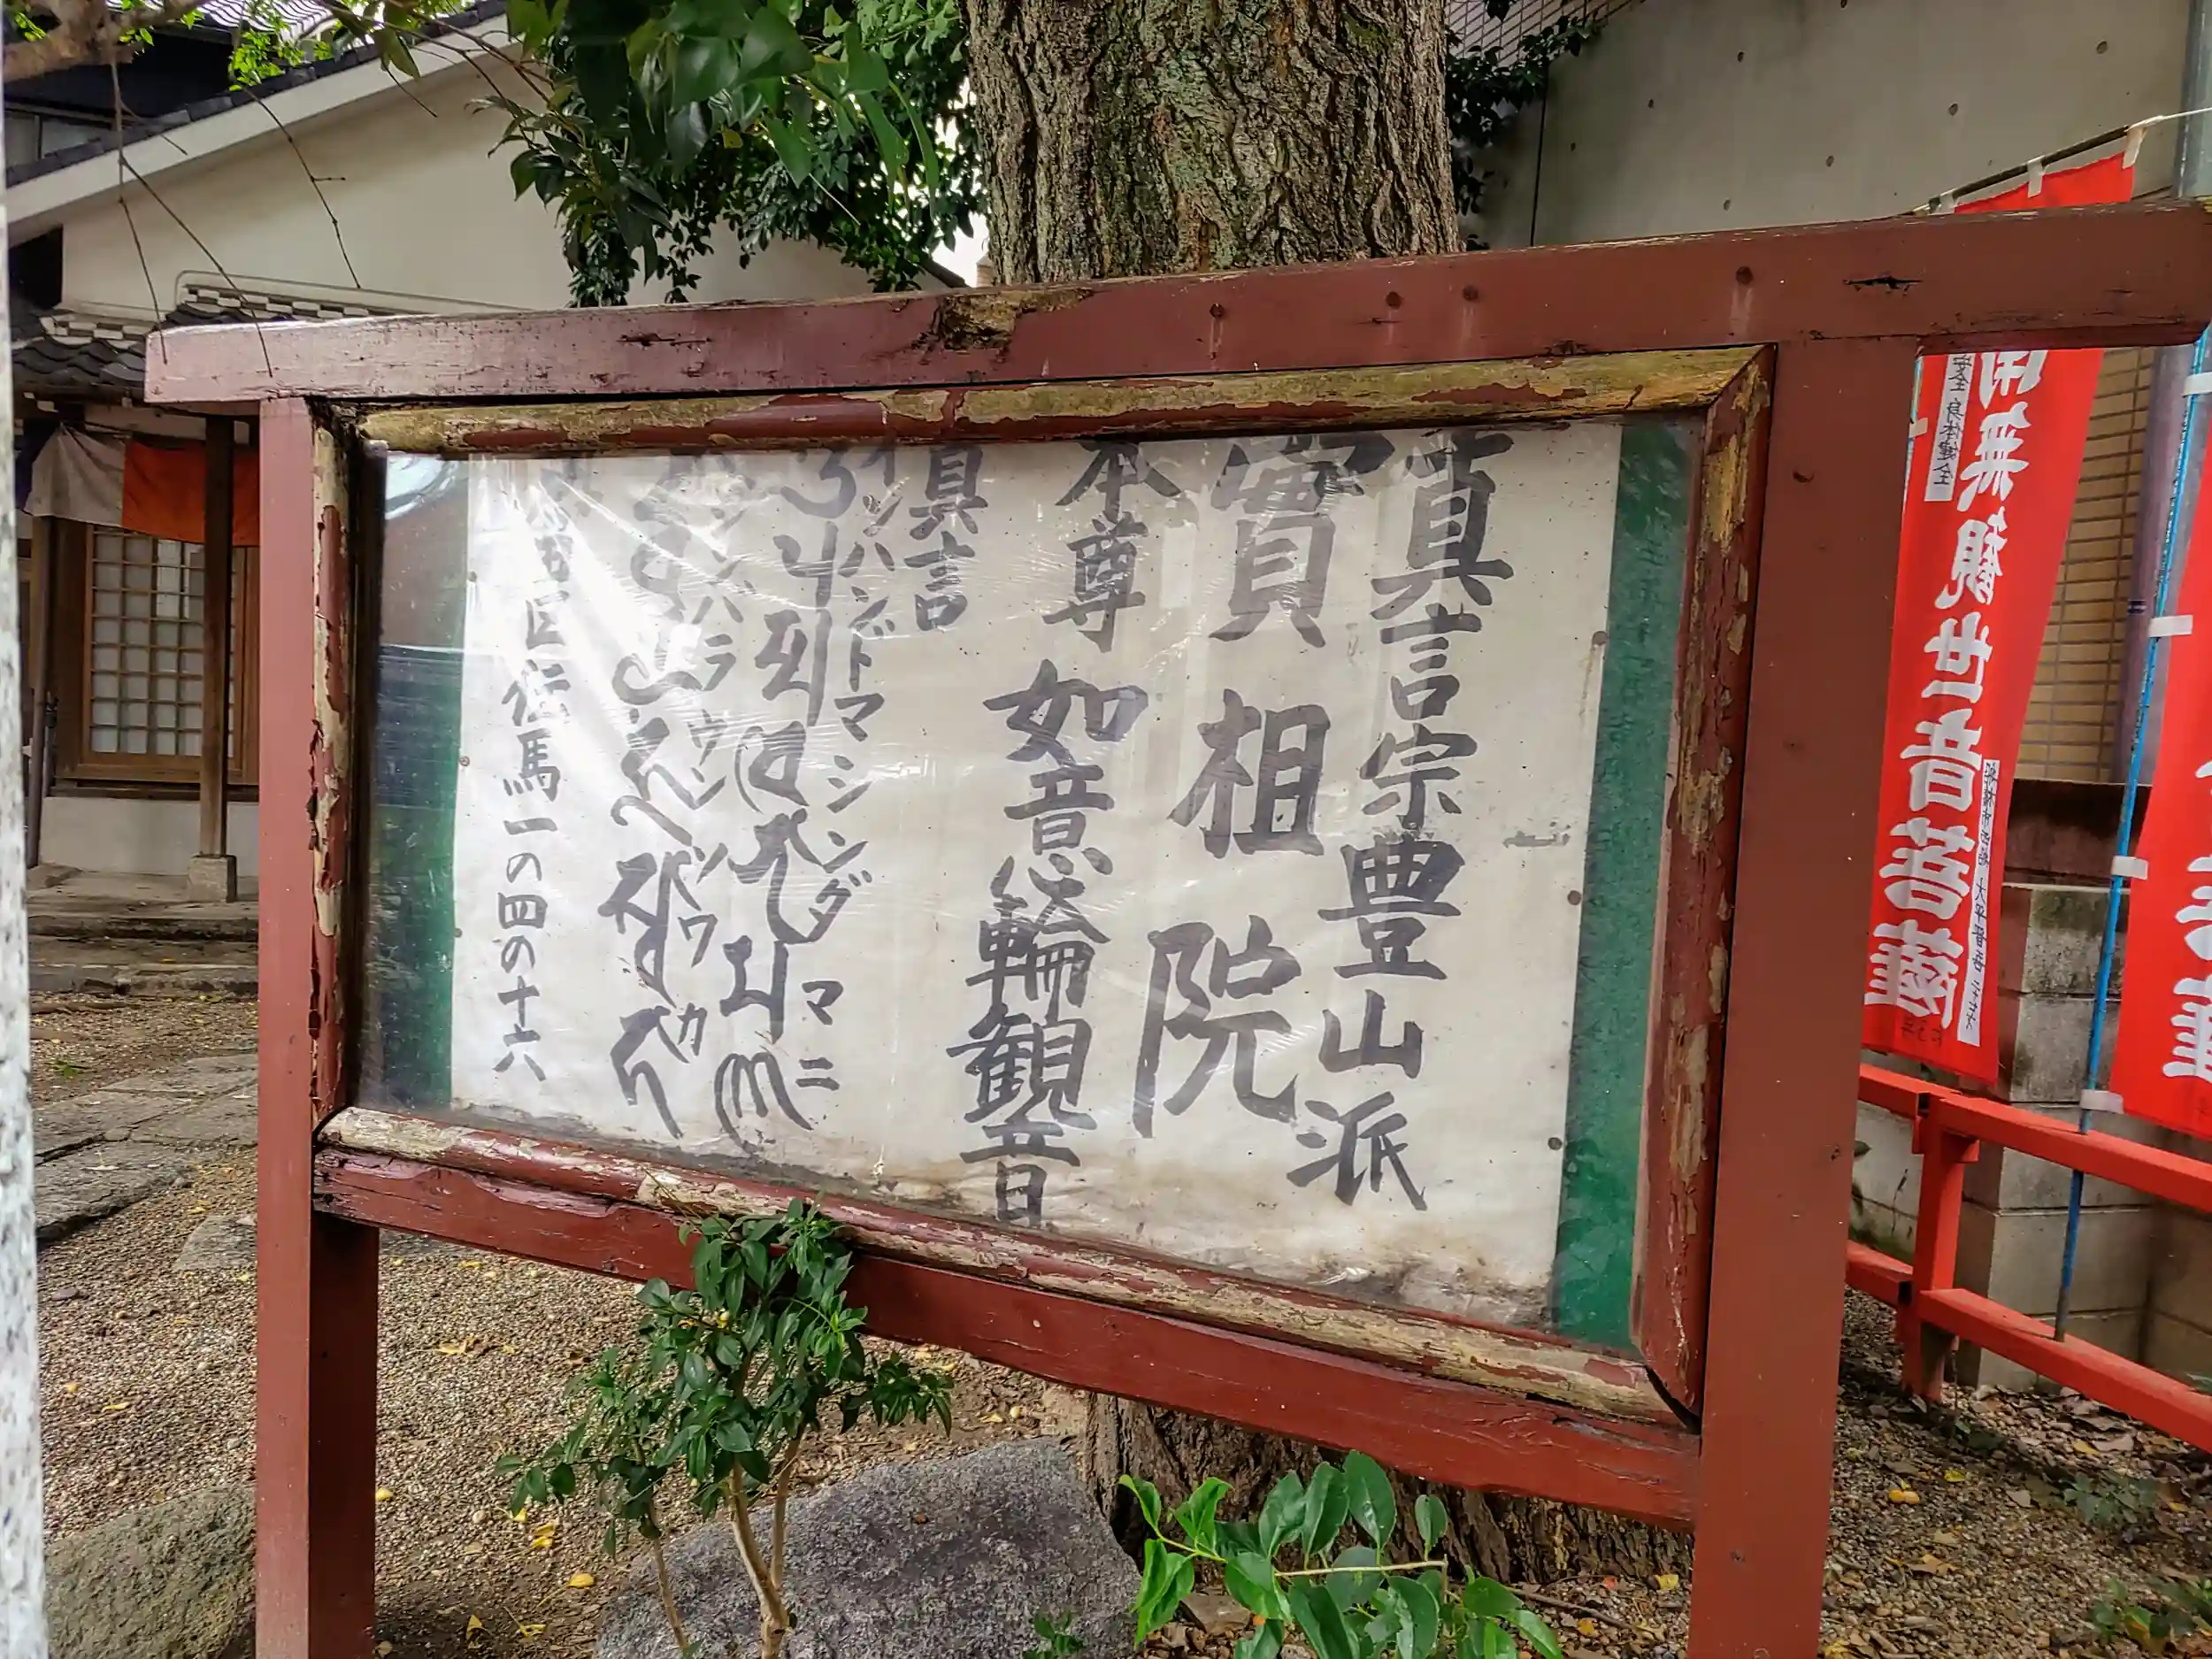 真言宗豊山派
實祖院
本尊 如意輪観音
真言
オンハンドマシンダマニ
ジンバラウンソワカ
熱田区伝馬一の四の十六
南無観世音菩薩
安全 身体健全